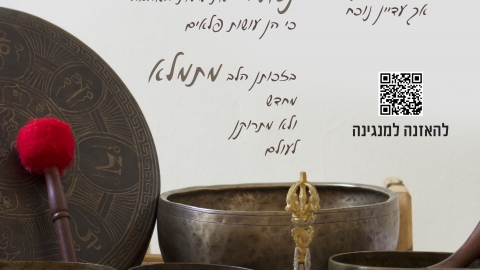 אך עדיין נוכח
כי הן עושות פלאים
בזכותן הלב מתמלא
מחדש
ולא מתרוקן
לעולם
להאזנה למנגינה